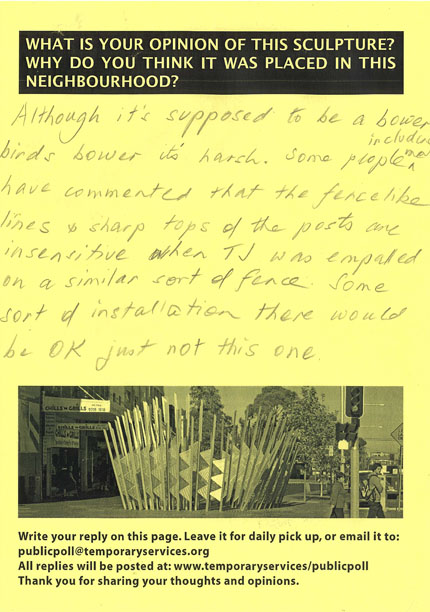 WHAT IS YOUR OPINION OF THIS SCULPTURE?
WHY DO YOU THINK IT WAS PLACED IN THIS
NEIGHBOURHOOD?
Although it's supposed to be a bower
birds bower it's harsh. Some people including me
have commented that the fencelike
lines & sharp tops of the posts are
insensitive when TJ was empalled
on a similar sort of fence. Some
sort of installation there would
be OK just not this one.
CHILLS N GRILLS
Write your reply on this page. Leave it for daily pick up, or email it to:
publicpoll@temporaryservices.org
All replies will be posted at: www.temporaryservices/publicpoll
Thank you for sharing your thoughts and opinions.